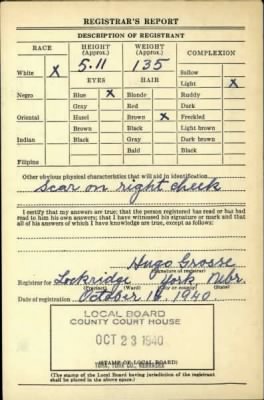 REGISTRAR'S REPORT
DESCRIPTION OF REGISTRANT
RACE HEIGHT (Approx.) WEIGHT (Approx.) COMPLEXION
White X 5.11 135 Sallow
EYES HAIR Light X
Negro Blue X Blonde Ruddy
Gray Red Dark
Oriental Hazel Brown X Freckled
Brown Black Light brown
Indian Black Gray Dark brown
Bald Black
Filipino
Other obvious physical characteristics that will aid in identification
Scar on right cheek
I certify that my answers are true; that the person registered has read or has had
read to him his own answers; that I have witnessed his signature or mark and that
all of his answers of which I have knowledge are true, except as follows:
Hugo Grosse
(Signature of registrar)
Registrar for Lockridge York Nebr.
(Precinct) (Ward) (City or county) (State)
Date of registration October 16, 1940
LOCAL BOARD
COUNTY COURT HOUSE
OCT 23 1940
YORK, YORK CO., NEBRASKA
(STAMP OF LOCAL BOARD)
(The stamp of the Local Board having jurisdiction of the registrant
shall be placed in the above space.)